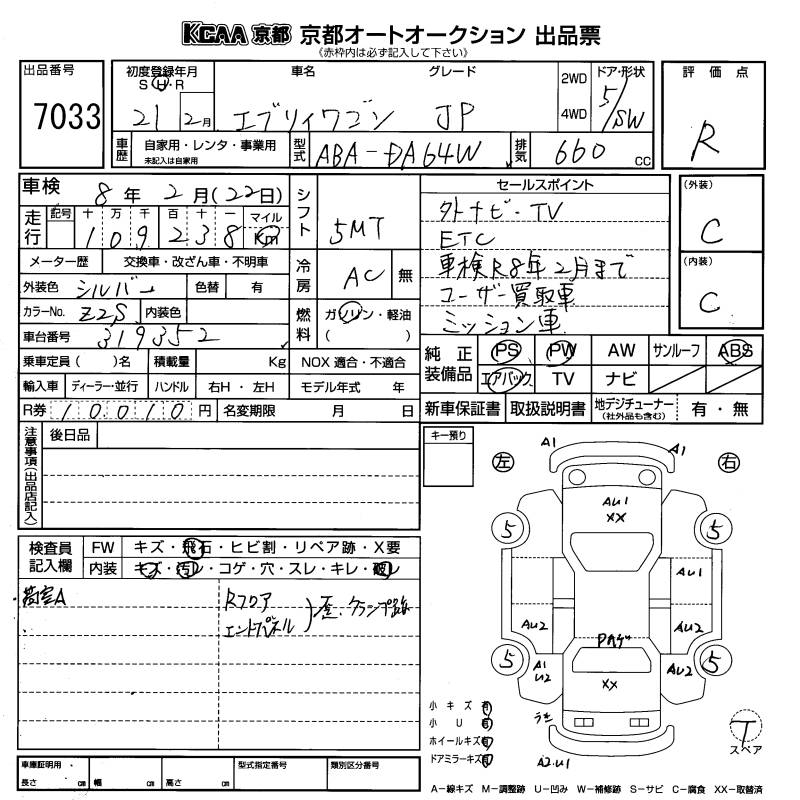 KCAA 京都 京都オートオークション 出品票
《赤枠内は必ず記入して下さい》
出品番号
7033
初度登録年月
S・H・R
21 2月
車名
エブリィワゴン
グレード
JP
2WD
4WD
ドア・形状
5/SW
評価点
R
車歴
自家用・レンタ・事業用
未記入は自家用
型式
ABA-DA64W
排気
660 CC
車検 8年 2月(22日)
走行
記号 十 万 千 百 十 一 マイル
1 0 9 2 3 8 Km
メーター歴 交換車・改ざん車・不明車
外装色 シルバー 色替 有
カラーNo. Z2S 内装色
車台番号 319352
シフト 5MT
冷房 AC 無
燃料 ガソリン・軽油
( )
セールスポイント
外ナビ・TV
ETC
車検R8年2月まで
ユーザー買取車
ミッション車
(外装)
C
(内装)
C
乗車定員( )名 積載量 Kg NOX 適合・不適合
輸入車 ディーラー・並行 ハンドル 右H・左H モデル年式 年
R券 10010円 名変期限 月 日
純正装備品
PS PW AW サンルーフ ABS
エアバック TV ナビ
新車保証書 取扱説明書 地デジチューナー(社外品も含む) 有・無
注意事項(出品店記入)
後日品
キー預り
検査員記入欄
FW キズ・飛石・ヒビ割・リペア跡・X要
内装 キズ・汚レ・コゲ・穴・スレ・キレ・破レ
荷室A
Rフロア
エンドパネル
歪、クランプ跡
左 右
A1 A1
AU1
XX
5 5
AU1
AU2 AU2
5 5
A1
U2
AU2
XX
A2.U1
小キズ 有
小U 有
ホイールキズ 有
ドアミラーキズ 有
T
スペア
車庫証明用・
長さ cm 幅 cm 高さ cm
型式指定番号
類別区分番号
A-線キズ M-調整跡 U-凹み W-補修跡 S-サビ C-腐食 XX-取替済